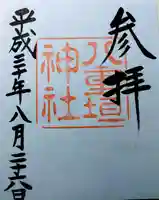 参拝
八重垣神社
平成三十年八月二十六日